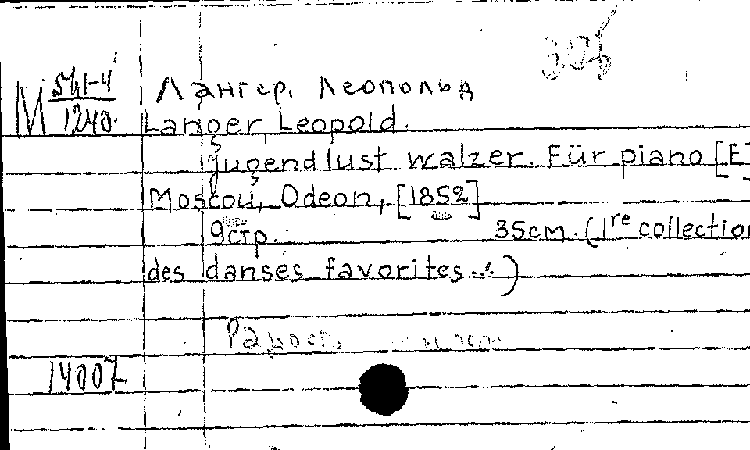 306
М 541-4 Лангер, Леопольд
1240 Langer, Leopold.
Jugendlust walzer. Für piano [E]
Moscou, Odeon, [1852]
9стр. 35см. (1re collection
des danses favorites...)
14007